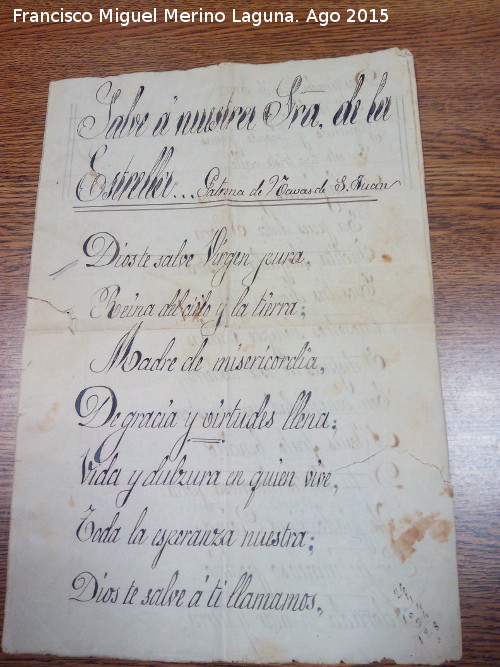 Francisco Miguel Merino Laguna. Ago 2015
Salve á nuestra Sra. de la
Estrella... Patrona de Navas de S. Juan
Dios te salve Virgen pura,
Reina del cielo y la tierra;
Madre de misericordia,
De gracia y virtudes llena;
Vida y dulzura en quien vive,
Toda la esperanza nuestra;
Dios te salve á ti llamamos,